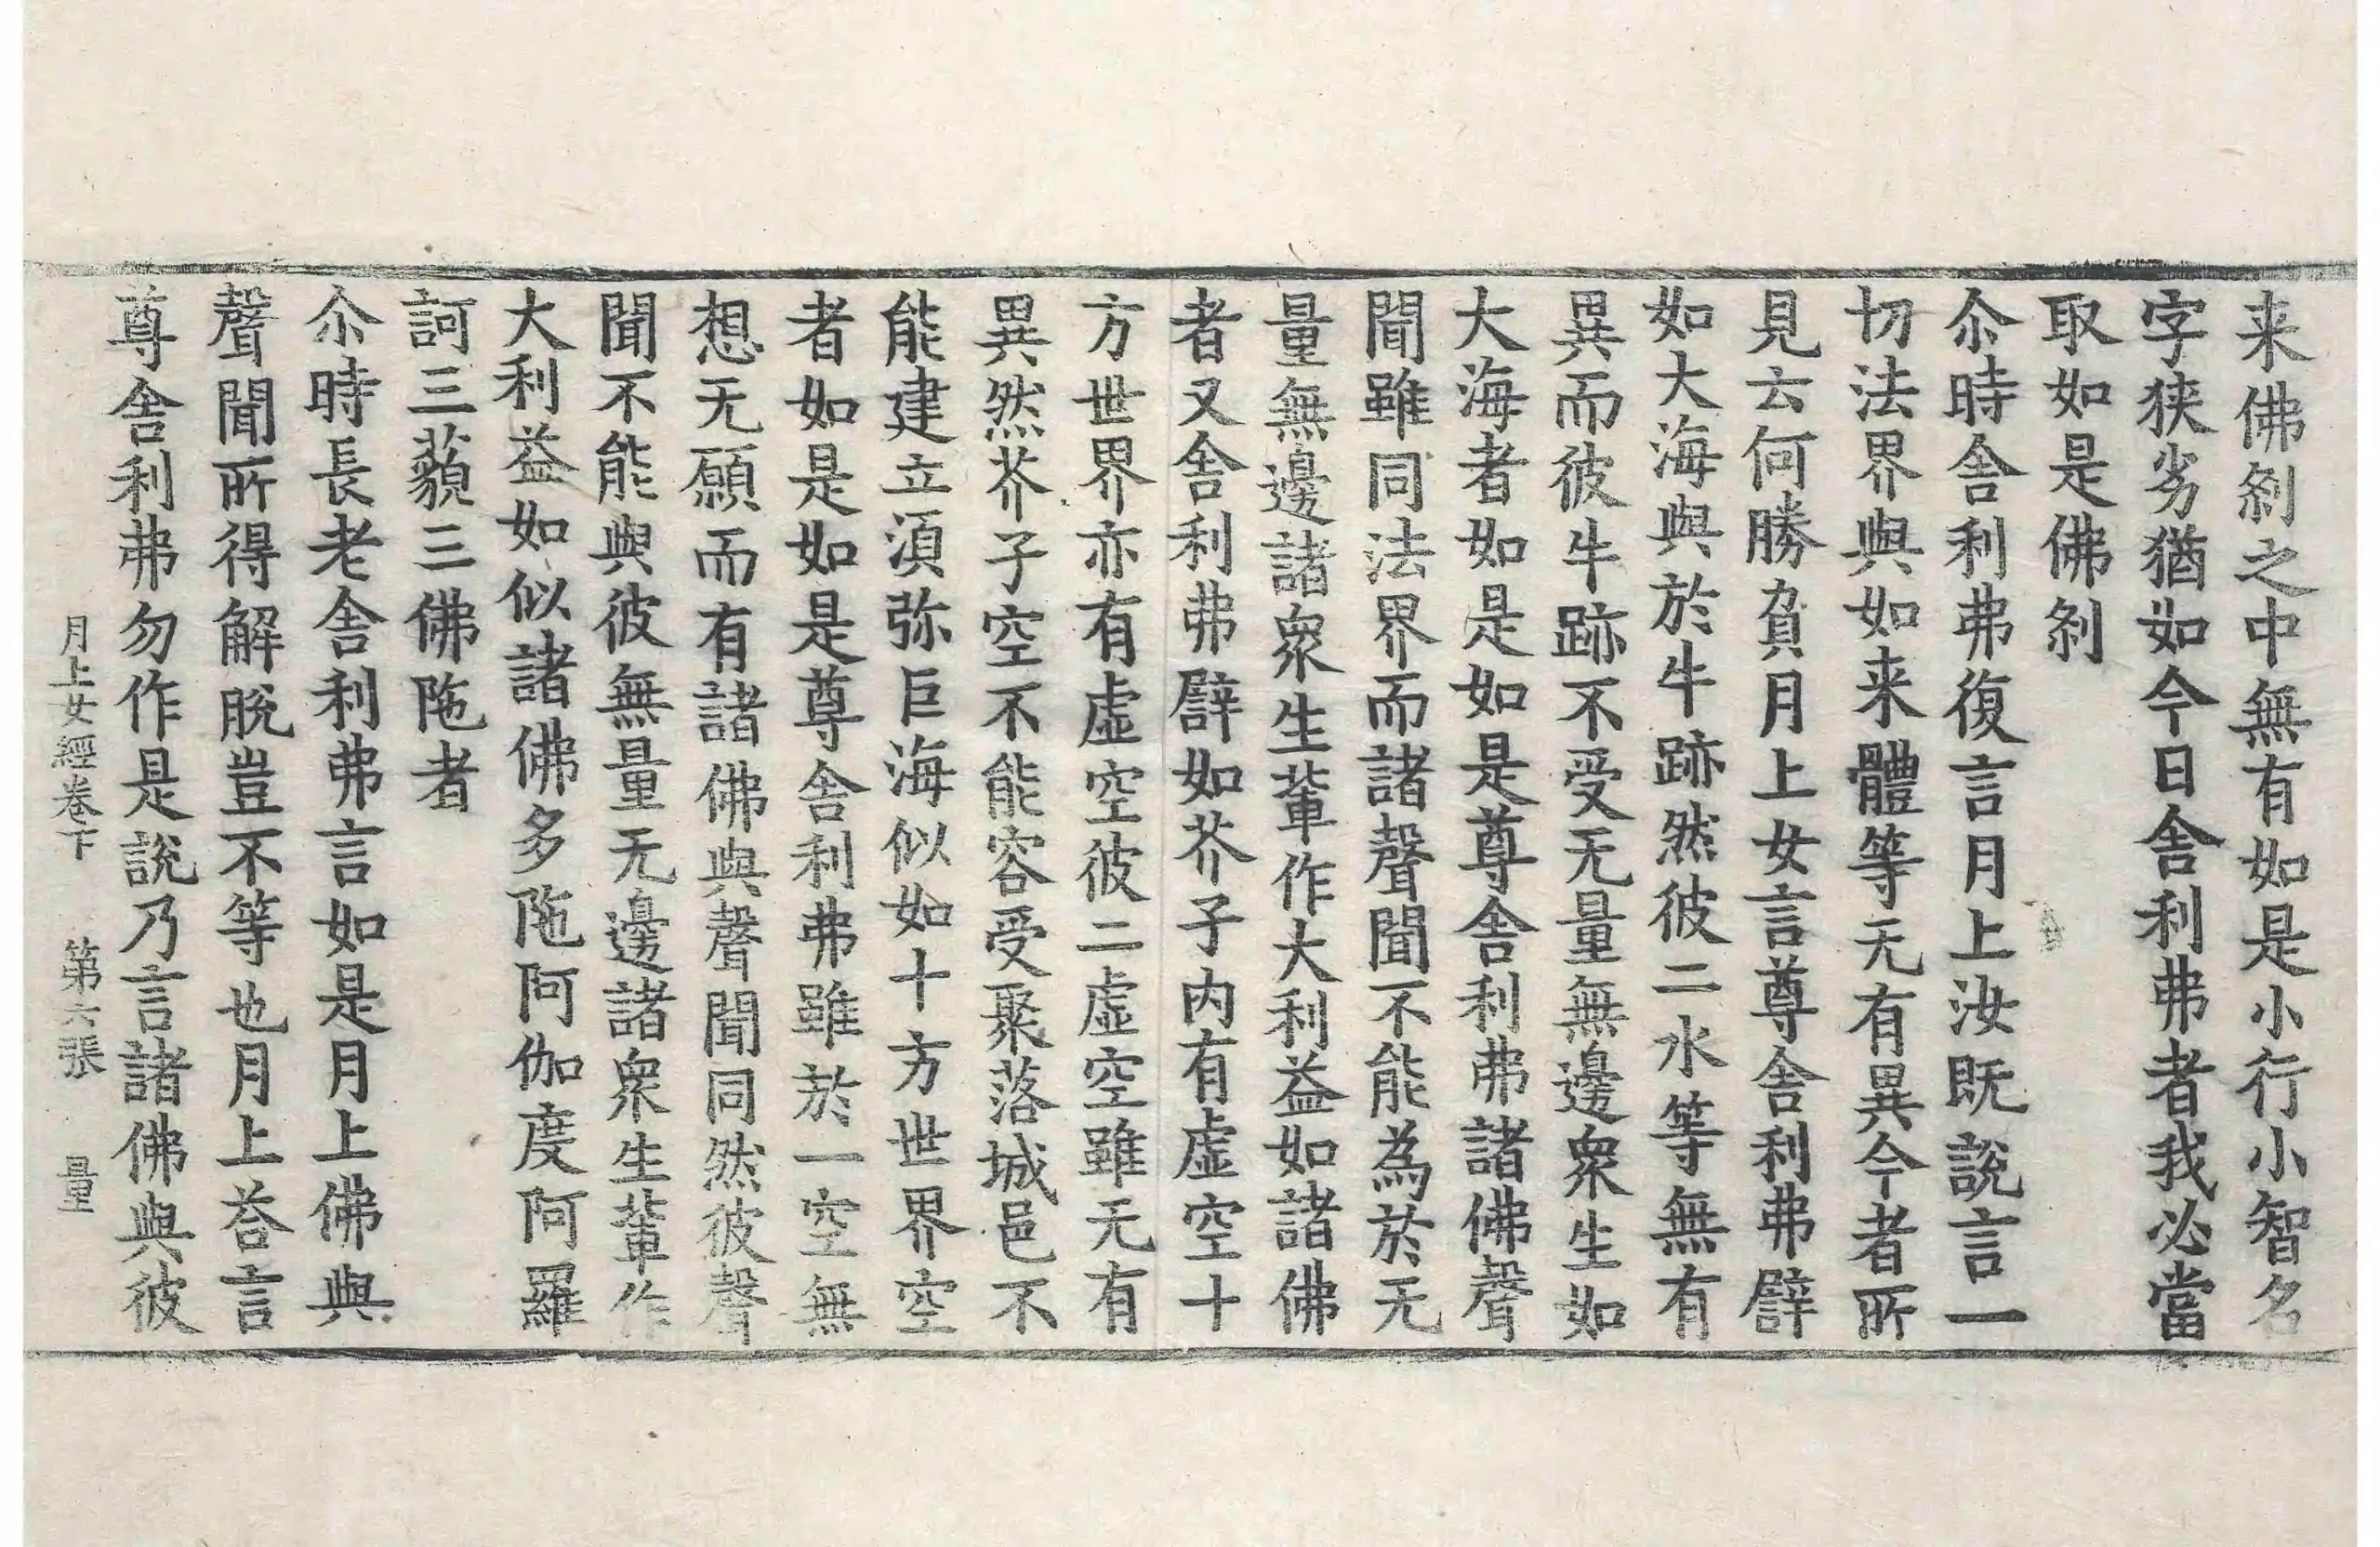 来佛刹之中無有如是小行小智名
字狹劣猶如今日舍利弗者我必當
取如是佛刹
尒時舍利弗復言月上汝旣說言一
切法界與如来體等无有異今者所
見云何勝負月上女言尊舍利弗譬
如大海與於牛跡然彼二水等無有
異而彼牛跡不受无量無邊衆生如
大海者如是如是尊舍利弗諸佛聲
聞雖同法界而諸聲聞不能為於无
量無邊諸衆生輩作大利益如諸佛
者又舍利弗譬如芥子内有虛空十
方世界亦有虛空彼二虛空雖无有
異然芥子空不能容受聚落城邑不
能建立湏弥巨海似如十方世界空
者如是如是尊舍利弗雖於一空無
想无願而有諸佛與聲聞同然彼聲
聞不能與彼無量无邊諸衆生輩作
大利益如似諸佛多陁阿伽度阿羅
訶三藐三佛陁者
尒時長老舍利弗言如是月上佛與
聲聞所得解脫豈不等也月上荅言
尊舍利弗勿作是說乃言諸佛與彼
月上女經卷下　第六張　量